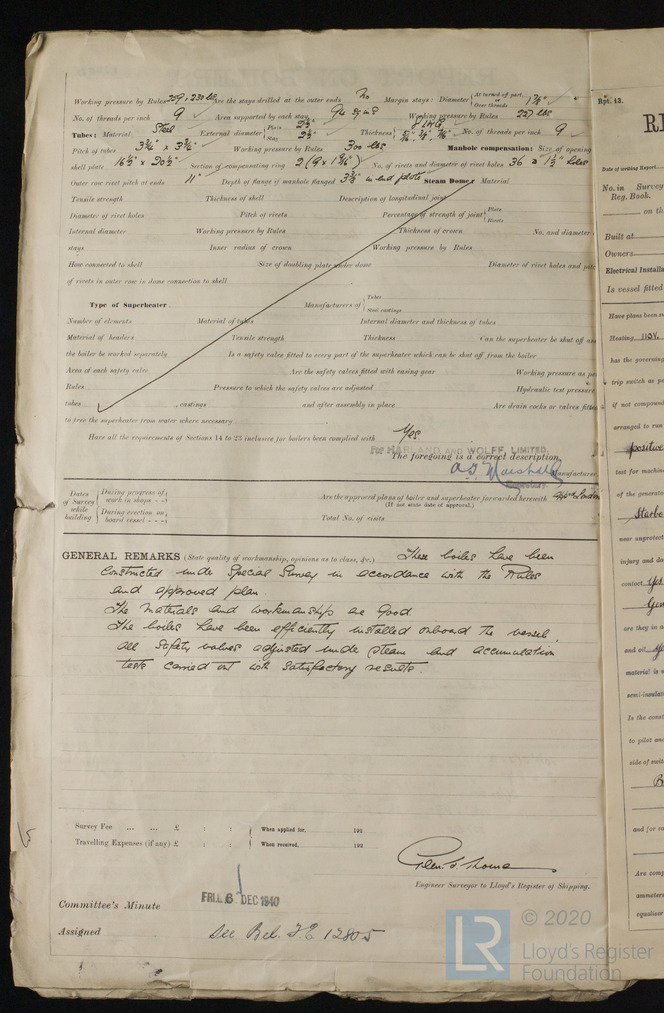 Working pressure by Rules 259, 230 lbs Are the stays drilled at the outer ends No Margin stays: Diameter { At turned off part or Over threads 1 7/8"
No. of threads per inch 9 Area supported by each stay Working pressure by Rules 227 lbs
Tubes: Material Steel External diameter { Plain 2½" Stay 2½" Thickness { 8 LSG No. of threads per inch 9
Pitch of tubes 3¾" x 3¾" Working pressure by Rules 300 lbs Manhole compensation: Size of opening
shell plate 16½" x 20½" Section of compensating ring No. of rivets and diameter of rivet holes 36 @ 1½" holes
Outer row rivet pitch at ends 11" Depth of flange if manhole flanged in end plate Steam Dome: Material
Tensile strength Thickness of shell Description of longitudinal joint
Diameter of rivet holes Pitch of rivets Percentage of strength of joint { Plate Rivets
Internal diameter Working pressure by Rules Thickness of crown No. and diameter
stays Inner radius of crown Working pressure by Rules
How connected to shell Size of doubling plate under dome Diameter of rivet holes and pitch
of rivets in outer row in dome connection to shell
Type of Superheater Manufacturers of { Tubes Steel castings
Number of elements Material of tubes Internal diameter and thickness of tubes
Material of headers Tensile strength Thickness Can the superheater be shut off and
the boiler be worked separately Is a safety valve fitted to every part of the superheater which can be shut off from the boiler
Area of each safety valve Are the safety valves fitted with easing gear Working pressure as per
Rules Pressure to which the safety valves are adjusted Hydraulic test pressure
tubes , castings and after assembly in place Are drain cocks or valves fitted
to free the superheater from water where necessary
Have all the requirements of Sections 14 to 23 inclusive for boilers been complied with Yes
For HARLAND AND WOLFF, LIMITED.
The foregoing is a correct description,
Manufacturer.
Dates of Survey while building { During progress of work in shops - - Are the approved plans of boiler and superheater forwarded herewith
(If not state date of approval.)
During erection on board vessel - - - Total No. of visits
GENERAL REMARKS (State quality of workmanship, opinions as to class, &c.) These boilers have been
constructed under Special Survey in accordance with the Rules
and approved plan.
The materials and workmanship are good
The boilers have been efficiently installed onboard the vessel.
all safety valves adjusted under steam and accumulation
tests carried out with satisfactory results.
Survey Fee ... ... £ : : When applied for, 193
Travelling Expenses (if any) £ : : When received, 193
Engineer Surveyor to Lloyd's Register of Shipping.
Committee's Minute FRI. 6 DEC 1940
Assigned See Bel. 12805
Rpt. 13.
RE
Date of writing Report
No. in Survey
Reg. Book.
on the
Built at
Owners
Electrical Installa
Is vessel fitted
Have plans been s
Heating
has the governing
trip switch as p
if not compound
arranged to run
positive
test for machin
of the generato
Starbo
near unprotect
injury and da
contact yes
Gen
are they in a
and oil
material is u
semi-insulat
Is the const
to pilot and
side of swit
and for ea
Are comp
ammeters
equaliser
LR © 2020
Lloyd's Register
Foundation